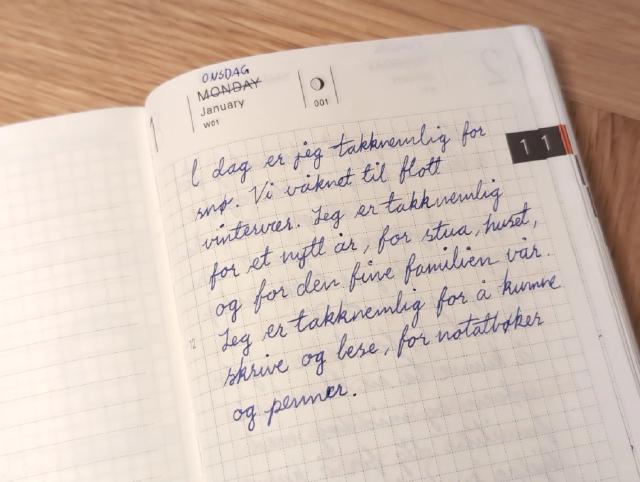 ONSDAG
MONDAY
January
W01
001
1
11
I dag er jeg takknemlig for
snø. Vi våknet til flott
vintervær. Jeg er takknemlig
for et nytt år, for stua, huset,
og for den fine familien vår.
12
Jeg er takknemlig for å kunne
skrive og lese, for notatbøker
og penner.